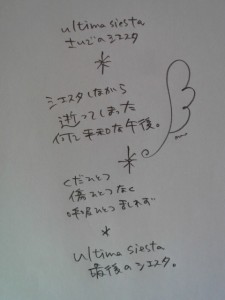 ultima siesta
さいごのシエスタ
シエスタしながら
逝ってしまった
何と平和な午後。
くだひとつ
傷ひとつなく
呼吸ひとつ
ultima siesta
最後のシエスタ。